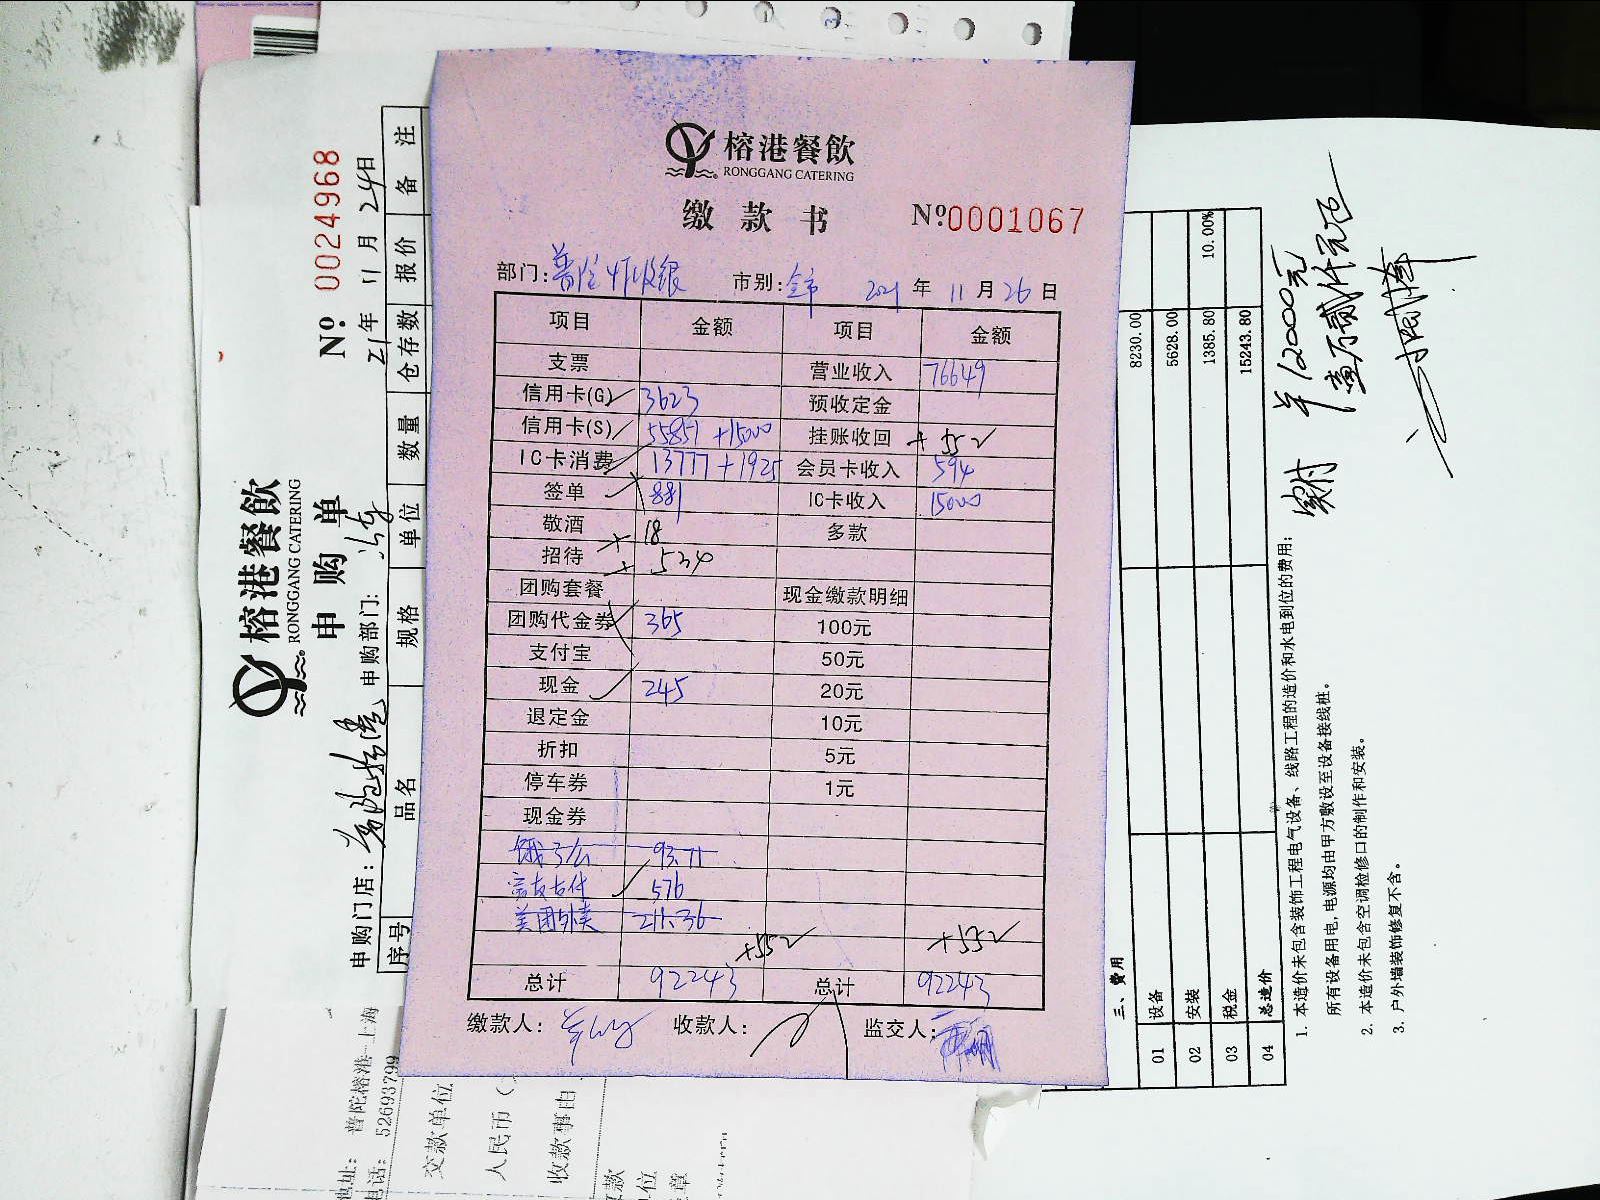 榕港餐飲
RONGGANG CATERING
缴款书 Nº 0001067
部门: 普陀 收银 市别: 全市 2021 年 11 月 26 日
项目 金额 项目 金额
支票 营业收入 76649
信用卡(G) 3623 预收定金
信用卡(S) 55857 +15000 挂账收回 +552
IC卡消费 13777+1925 会员卡收入 594
签单 881 IC卡收入 15000
敬酒 18 多款
招待 534
团购套餐 现金缴款明细
团购代金券 365 100元
支付宝 50元
现金 245 20元
退定金 10元
折扣 5元
停车券 1元
现金券
饿了么 93.71
576
美团外卖 211.36
+552 +552
总计 92243 总计 92243
缴款人: 收款人: 监交人:
榕港餐飲
RONGGANG CATERING
申购单
Nº 0024968
21年 11月 24日
申购门店: 申购部门:
序号 品名 规格 单位 数量 仓存数 报价 备注
地址: 普陀榕港-上海
电话: 52693799
交款单位
人民币(
收款事由
三、费用
01 设备 8230.00
02 安装 5628.00
03 税金 10.00% 1385.80
04 总造价 15243.80
1. 本造价未包含装饰工程电气设备、线路工程的造价和水电到位的费用;
所有设备用电,电源均由甲方敷设至设备接线桩。
2. 本造价未包含空调检修口的制作和安装。
3. 户外墙装饰修复不含。
实付 ¥12000元
壹万贰仟元正